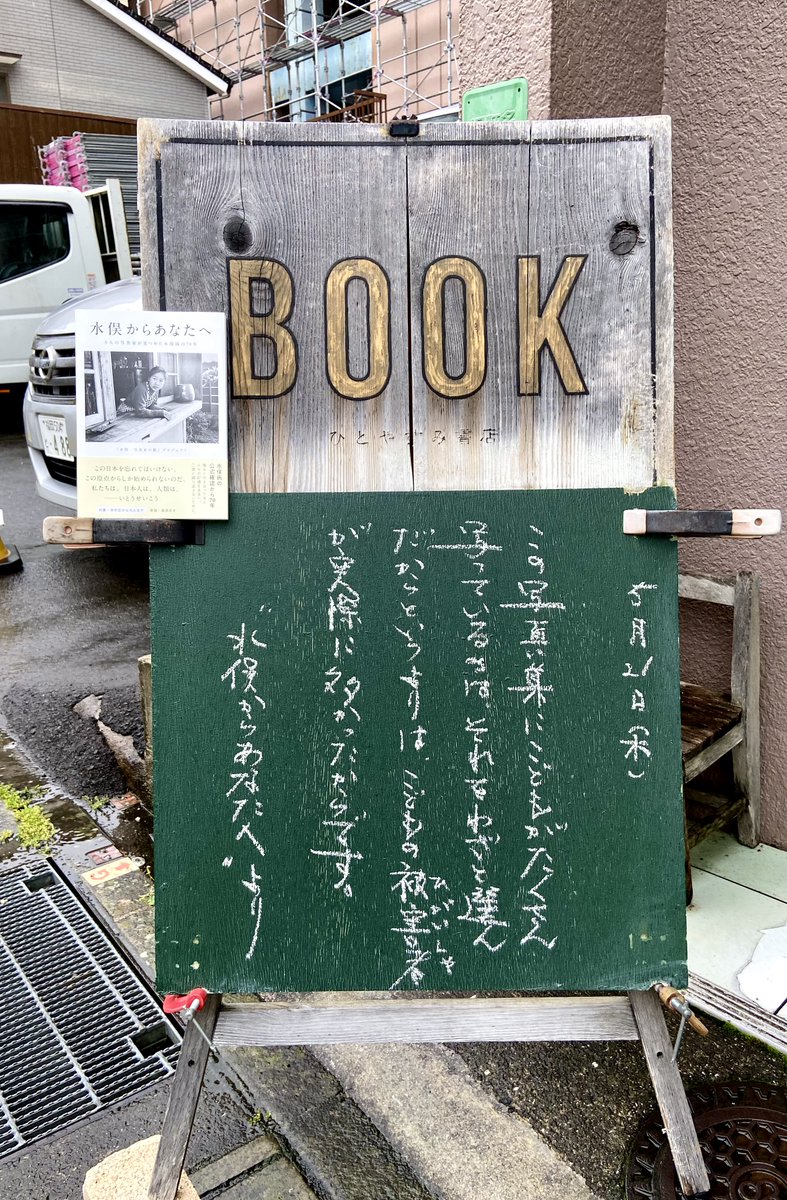 BOOK
ひとやすみ書店
水俣からあなたへ
この日本を忘れてはいけない。
この原点からしか始められないのだ、
私たちは、日本人は、人類は。
——いとうせいこう
水俣病の
公式確認から70年
5月21日(木)
この写真集にこどもがたくさん
写っているのは、それをわざと選ん
だからというよりは、こどもの被害者
ひがいしゃ
が実際に多かったからです。
“水俣からあなたへ”より